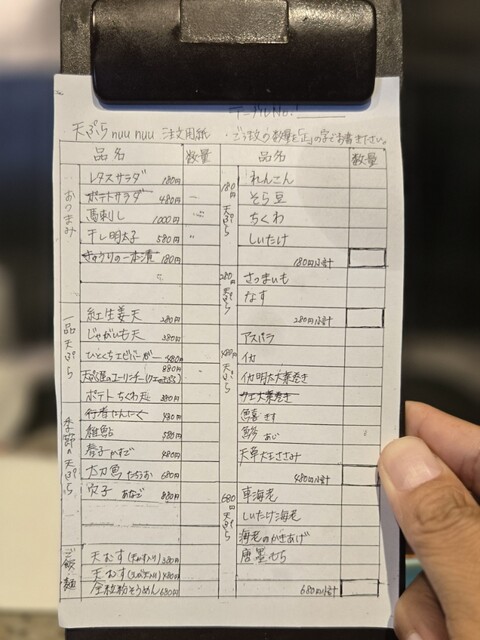 テーブルNo.
天ぷら nuu nuu 注文用紙 ご注文の数量を「正」の字でお書き下さい。
品名 数量 品名 数量
おつまみ
レタスサラダ 180円
ポテトサラダ 480円
馬刺し 1000円
干し明太子 580円
きゅうりの一本漬 180円
一品天ぷら
紅生姜天 280円
じゃがいも天 380円
ひとくちエビバーガー 480円
880円
ポテトちくわ天
季節の天ぷら
行者にんにく 480円
稚鮎 580円
春子 かすご 480円
太刀魚 たちうお 680円
穴子 あなご 880円
ご飯・麺
天むす 380円
天むす 480円
全粒粉そうめん 680円
180円天ぷら
れんこん
そら豆
ちくわ
しいたけ
180円小計
280円天ぷら
さつまいも
なす
280円小計
480円天ぷら
アスパラ
イカ
イカ明太大葉巻き
大葉巻き
鱚 きす
鯵 あじ
天草大王ささみ
480円小計
680円天ぷら
車海老
しいたけ海老
海老のかきあげ
唐墨もち
680円小計